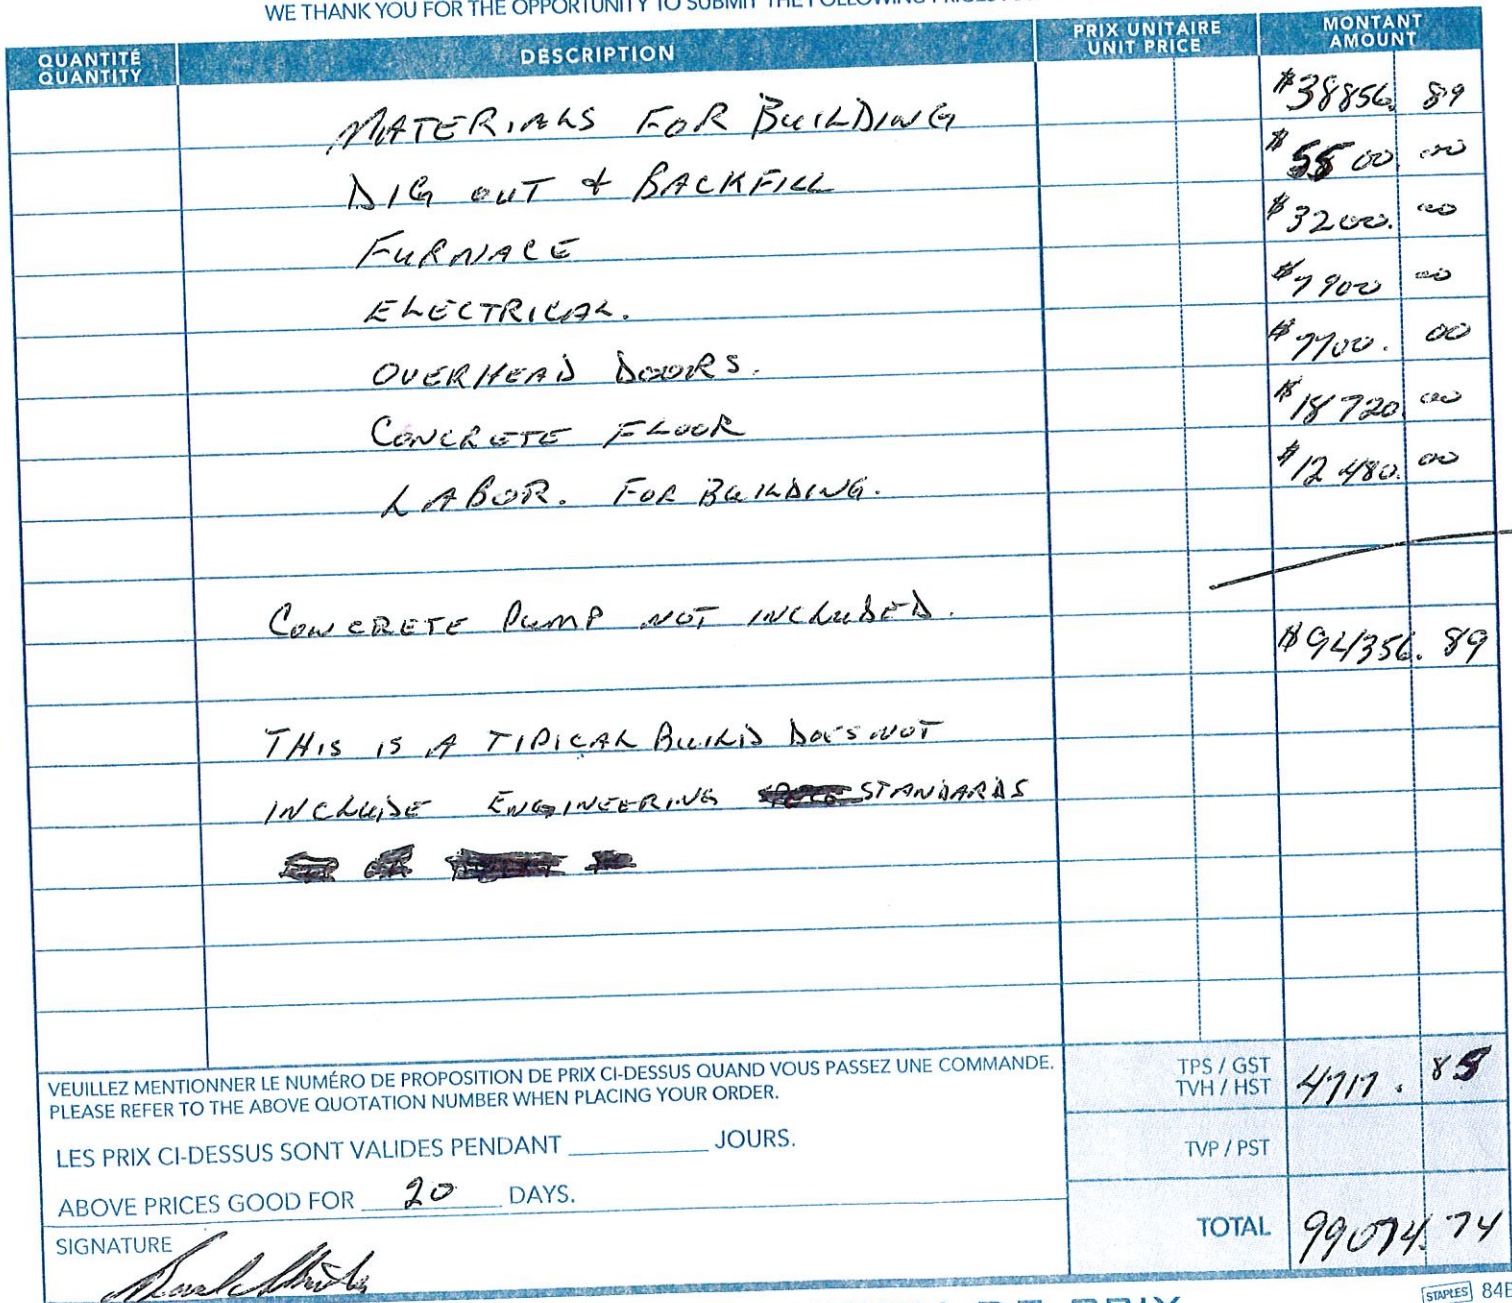 WE THANK YOU FOR THE OPPORTUNITY TO SUBMIT THE FOLLOWING PRICES
QUANTITÉ QUANTITY DESCRIPTION PRIX UNITAIRE UNIT PRICE MONTANT AMOUNT
MATERIALS FOR BUILDING $38856. 89
DIG OUT & BACKFILL $5500 .00
FURNACE $3200. 00
ELECTRICAL. $7900 00
OVERHEAD DOORS. $7700. 00
CONCRETE FLOOR $18720. 00
LABOR. FOR BUILDING. $12480. 00
CONCRETE PUMP NOT INCLUDED.
$94356. 89
THIS IS A TIPICAL BUILD DOES NOT
INCLUDE ENGINEERING STANDARDS
VEUILLEZ MENTIONNER LE NUMÉRO DE PROPOSITION DE PRIX CI-DESSUS QUAND VOUS PASSEZ UNE COMMANDE.
PLEASE REFER TO THE ABOVE QUOTATION NUMBER WHEN PLACING YOUR ORDER.
TPS / GST
TVH / HST 4717. 85
LES PRIX CI-DESSUS SONT VALIDES PENDANT ________ JOURS.
TVP / PST
ABOVE PRICES GOOD FOR 20 DAYS.
TOTAL 99074. 74
SIGNATURE
DE PRIX
STAPLES